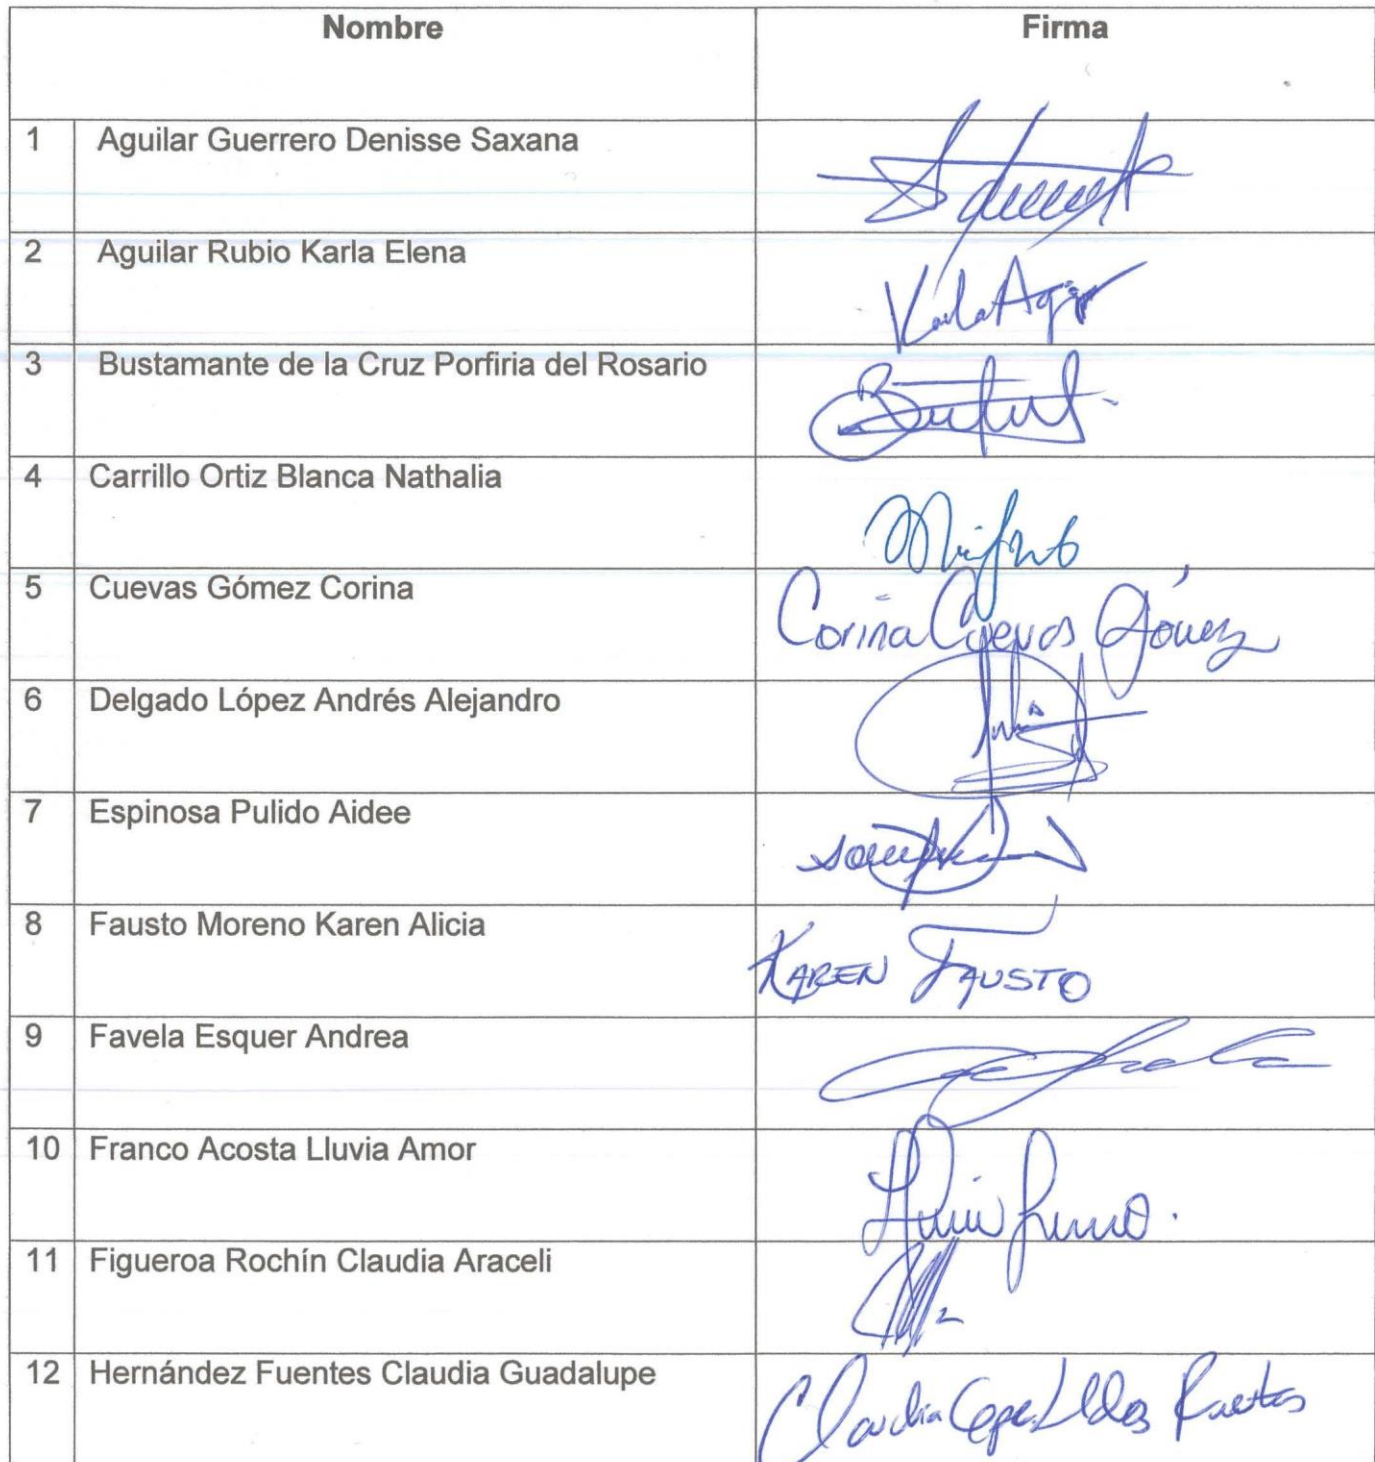 Nombre Firma
1 Aguilar Guerrero Denisse Saxana
2 Aguilar Rubio Karla Elena Karla
3 Bustamante de la Cruz Porfiria del Rosario
4 Carrillo Ortiz Blanca Nathalia
5 Cuevas Gómez Corina Corina Cuevas Gómez
6 Delgado López Andrés Alejandro
7 Espinosa Pulido Aidee
8 Fausto Moreno Karen Alicia KAREN FAUSTO
9 Favela Esquer Andrea
10 Franco Acosta Lluvia Amor
11 Figueroa Rochín Claudia Araceli
12 Hernández Fuentes Claudia Guadalupe Claudia Gpe. Hdez Fuentes